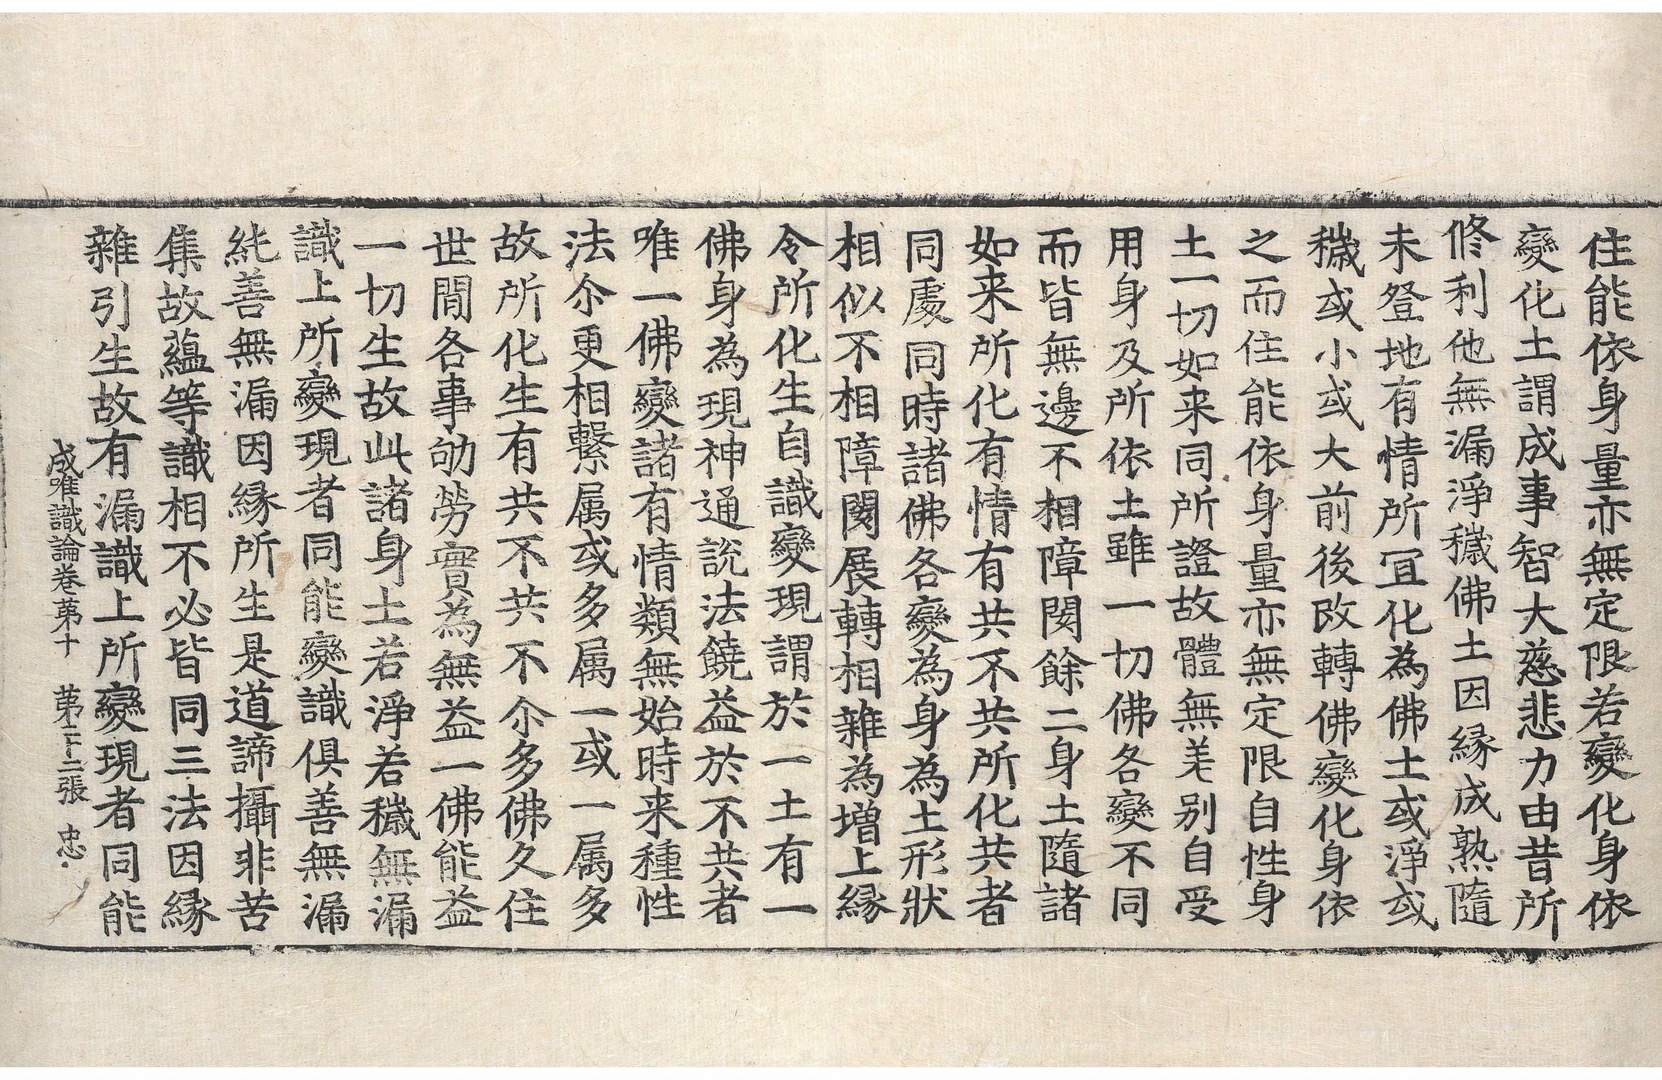 住能依身量亦無定限若變化身依
變化土謂成事智大慈悲力由昔所
修利他無漏淨穢佛土因縁成熟隨
未登地有情所冝化為佛土或淨或
穢或小或大前後改轉佛變化身依
之而住能依身量亦無定限自性身
土一切如来同所證故體無差别自受
用身及所依土雖一切佛各變不同
而皆無邊不相障閡餘二身土隨諸
如来所化有情有共不共所化共者
同處同時諸佛各變為身為土形狀
相似不相障閡展轉相雜為増上縁
令所化生自識變現謂於一土有一
佛身為現神通說法饒益於不共者
唯一佛變諸有情類無始時来種性
法尒更相繫属或多属一或一属多
故所化生有共不共不尒多佛久住
世間各事劬勞實為無益一佛能益
一切生故此諸身土若淨若穢無漏
識上所變現者同能變識俱善無漏
純善無漏因縁所生是道諦攝非苦
集故蘊等識相不必皆同三法因縁
雜引生故有漏識上所變現者同能
成唯識論卷苐十 苐二十二張 忠